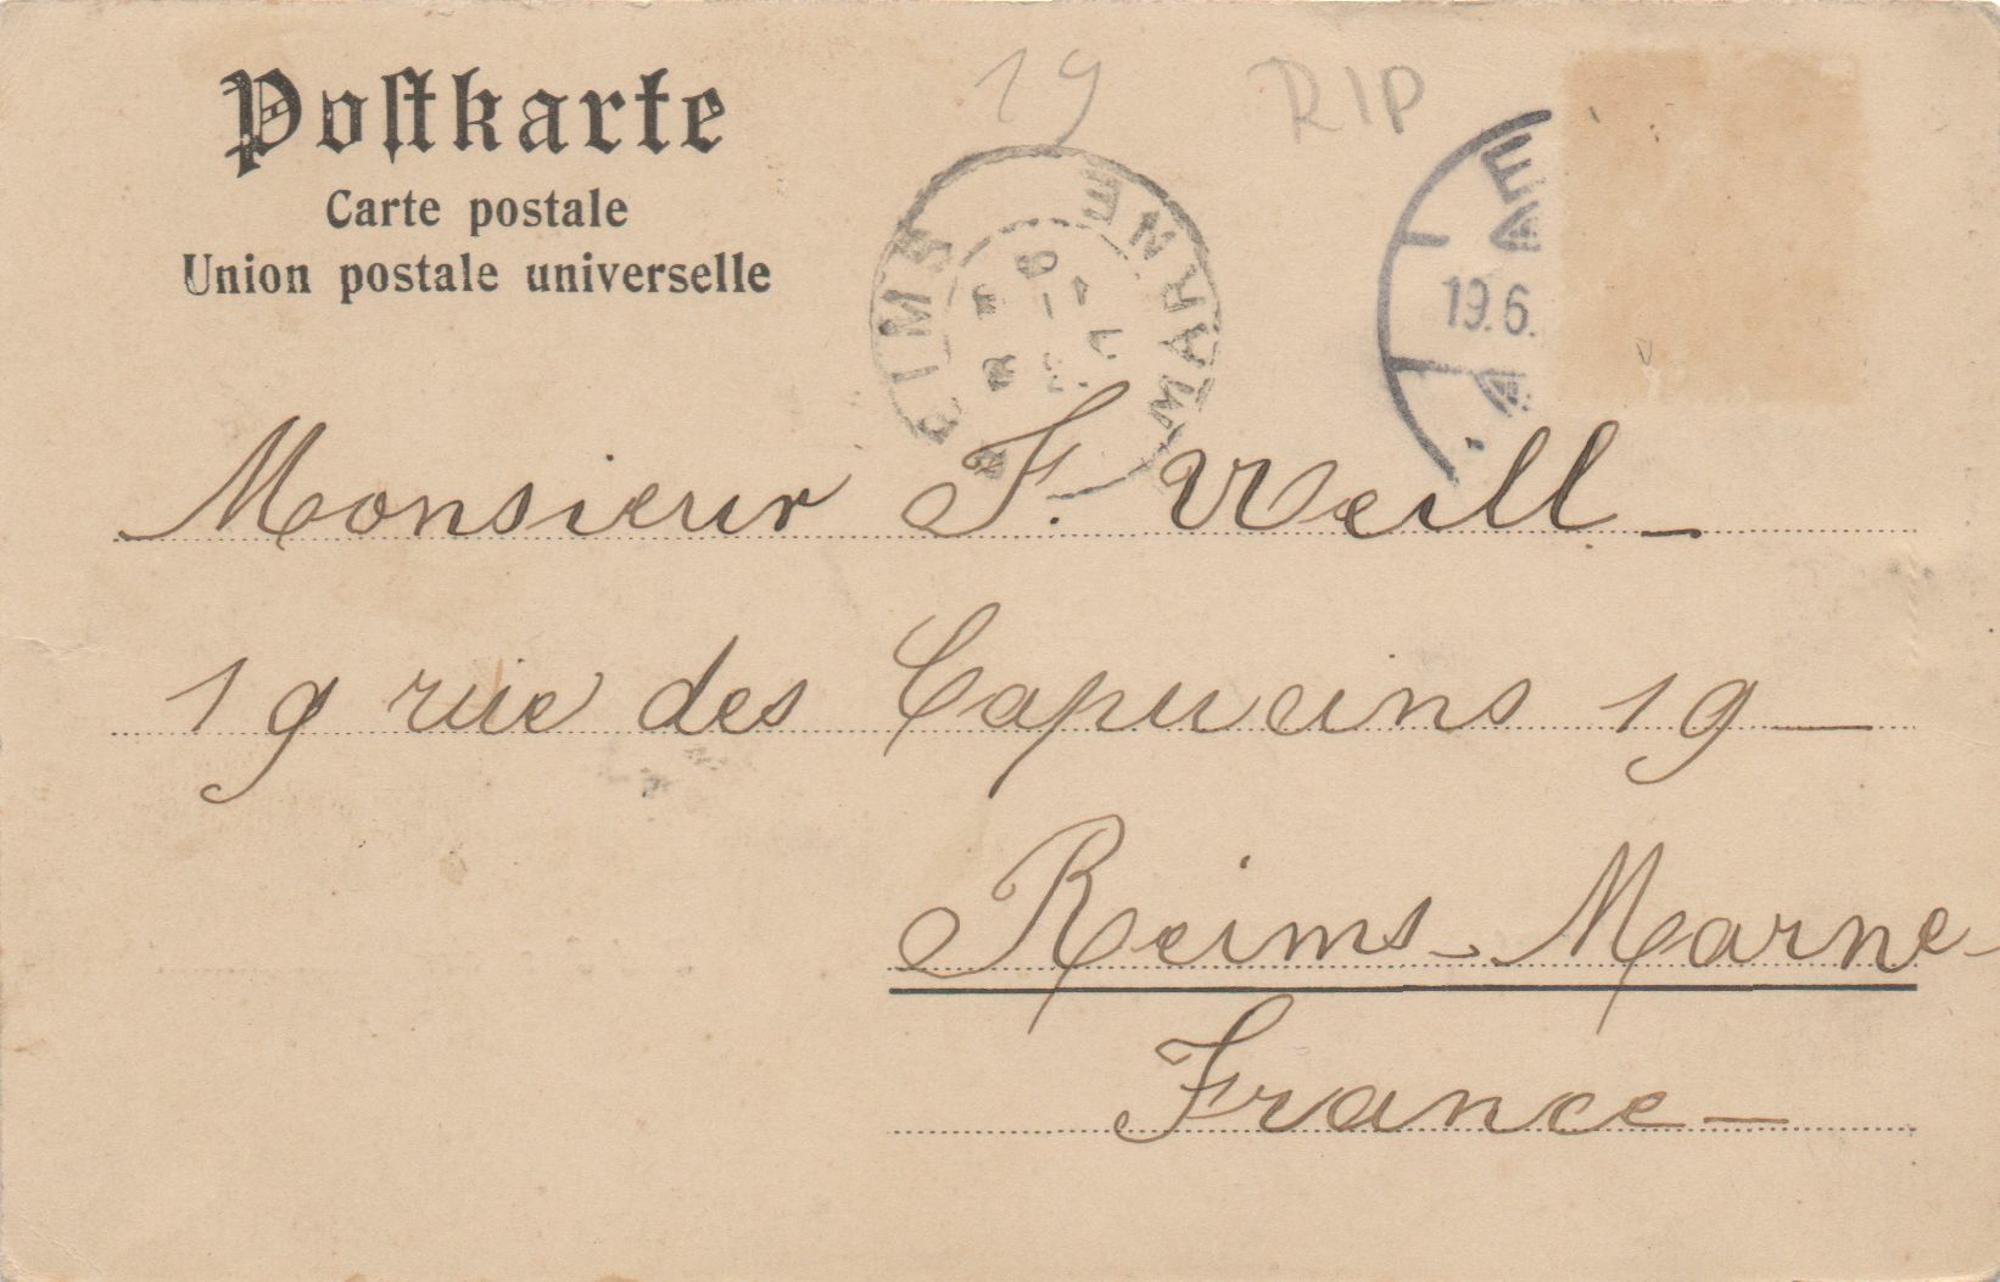 Postkarte
Carte postale
Union postale universelle
19
RIP
REIMS
MARNE
19.6.
Monsieur F. Weill
19 rue des Capucins 19
Reims - Marne -
France -